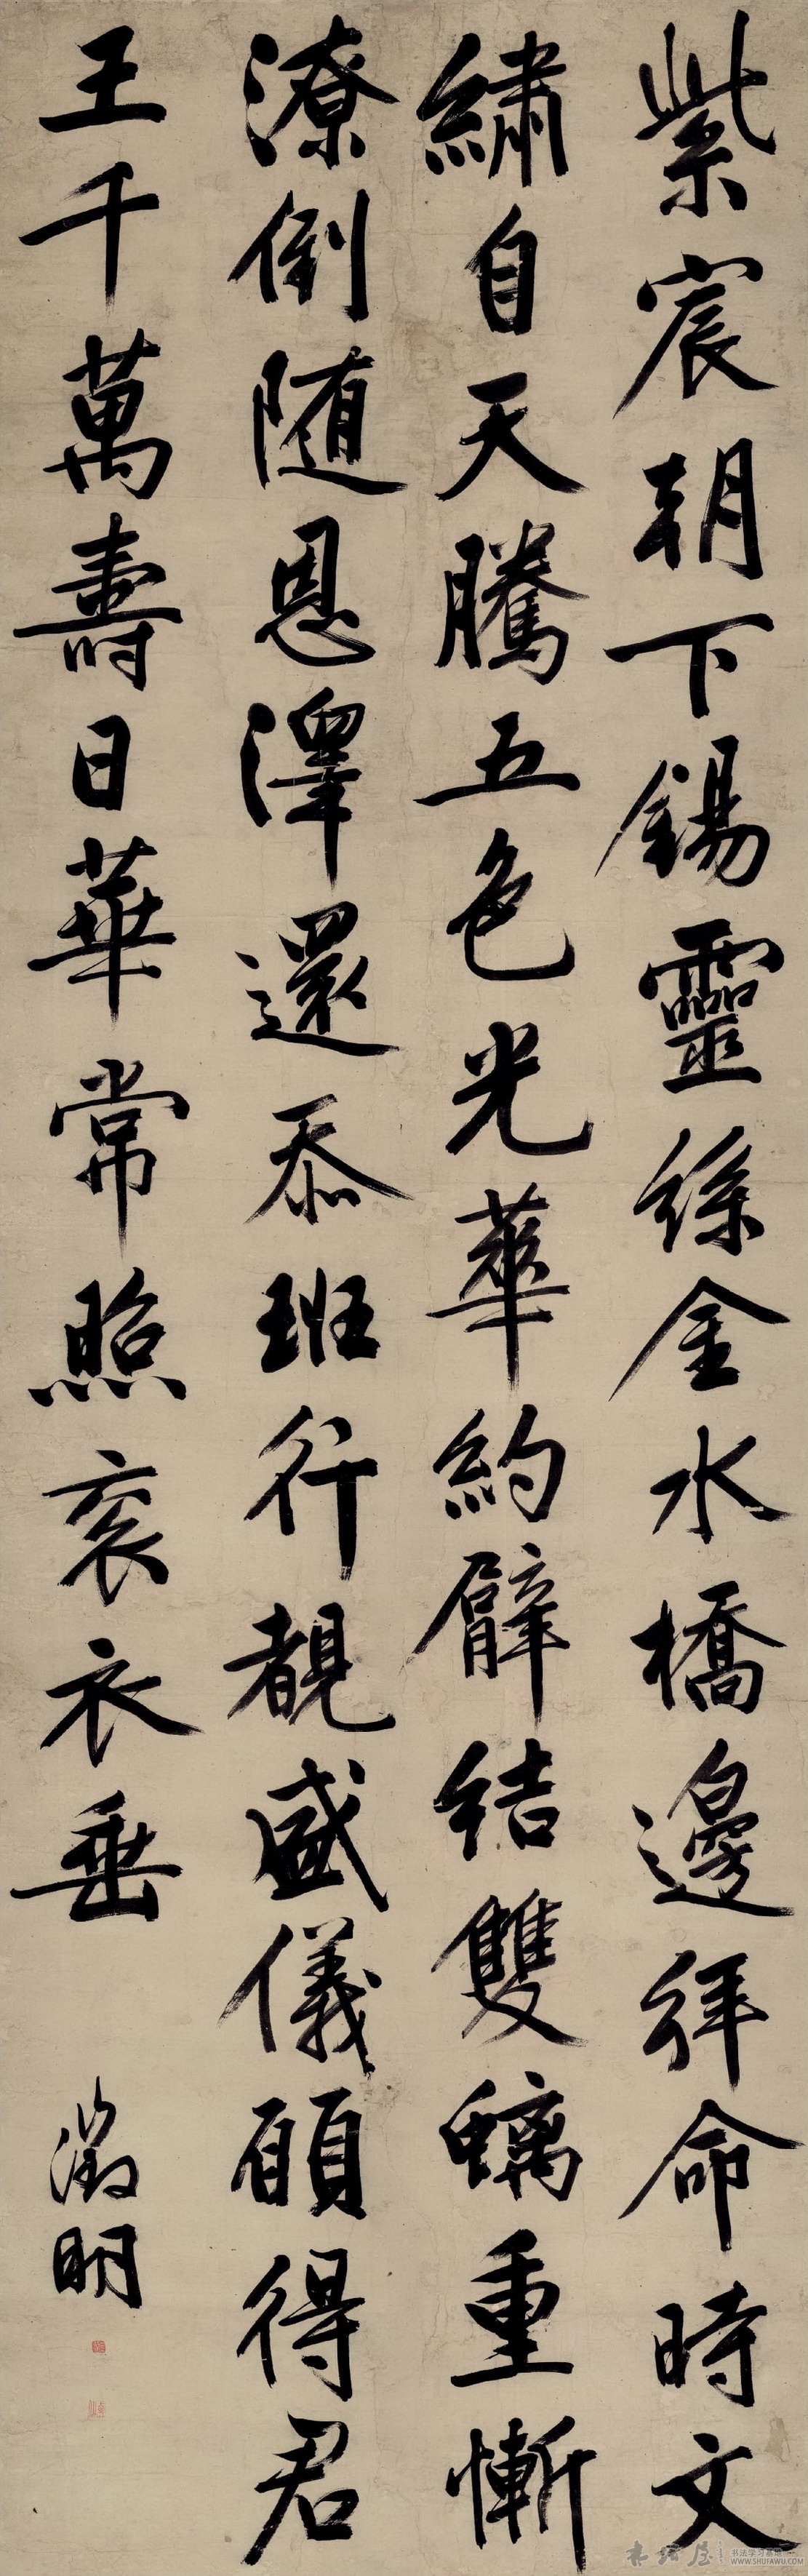 紫宸朝下錫靈絲金水橋邊拜命時文
繡自天騰五色光華約臂結雙螭重慚
潦倒随恩澤還忝班行覩盛儀願得君
王千萬壽日華常照袞衣垂
徵明
书法屋
书法学习基地
WWW.SHUFAWU.COM